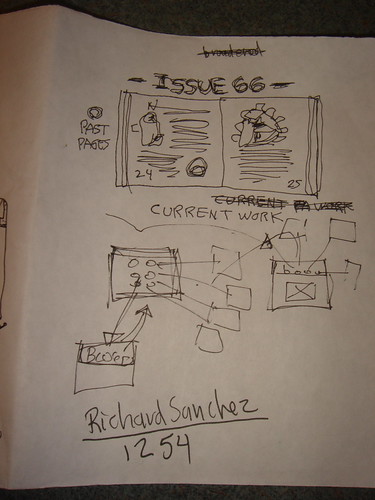 - ISSUE 66 -
PAST
PAGES
N
24
25
CURRENT WORK
CURRENT WORK
Richard Sanchez
1254